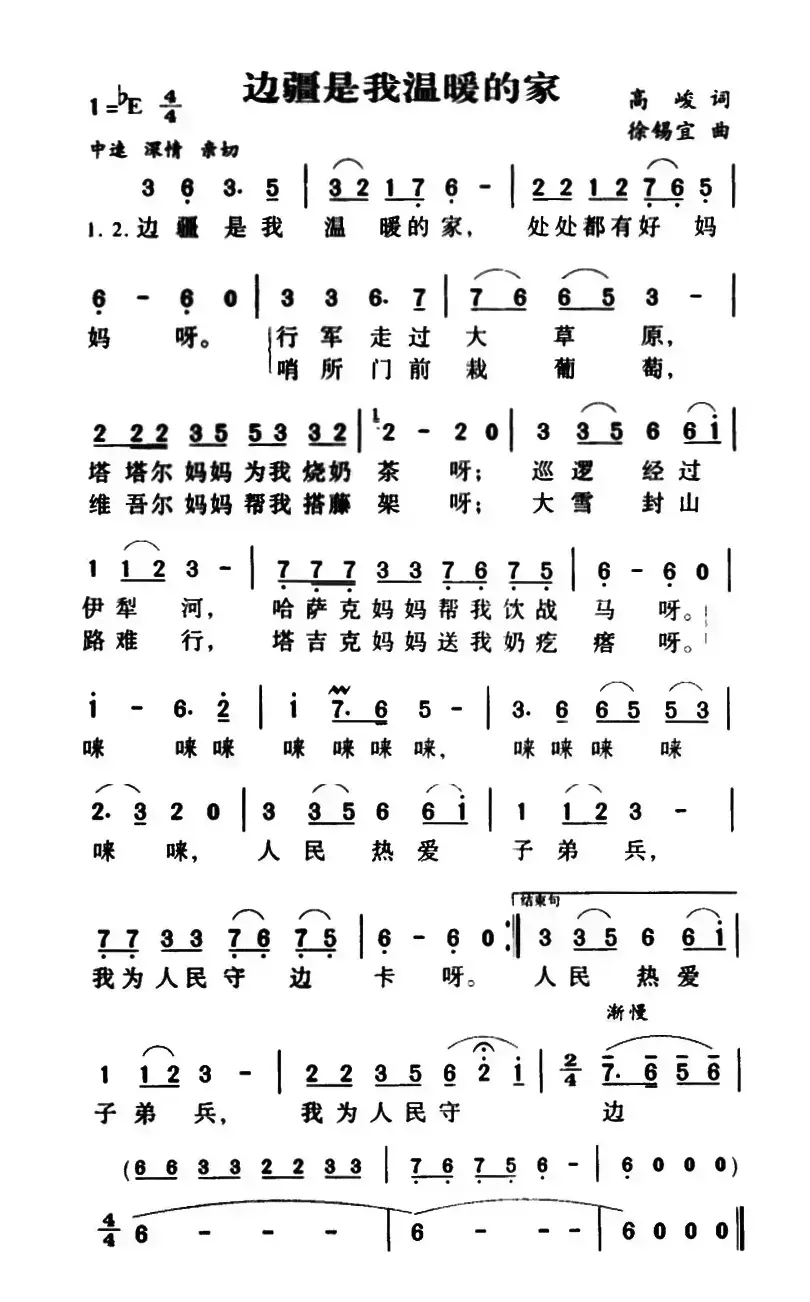 边疆是我温暖的家
1=♭E 4/4
高 峻 词
徐锡宜 曲
中速 深情 亲切
3 6 3· 5 | 3 2 1 7 6 - | 2 2 1 2 7 6 5 |
1. 2. 边 疆 是 我 温 暖 的 家, 处处都有好 妈
6 - 6 0 | 3 3 6· 7 | 7 6 6 5 3 - |
妈 呀。 行 军 走 过 大 草 原,
哨 所 门 前 栽 葡 萄,
2 2 2 3 5 5 3 3 2 | 1 2 - 2 0 | 3 3 5 6 6 i |
塔 塔尔 妈妈 为我 烧奶 茶 呀; 巡 逻 经 过
维 吾尔 妈妈 帮我 搭藤 架 呀; 大 雪 封 山
1 1 2 3 - | 7 7 7 3 3 7 6 7 5 | 6 - 6 0 |
伊 犁 河, 哈 萨 克 妈 妈 帮 我 饮 战 马 呀。
路 难 行, 塔 吉 克 妈 妈 送 我 奶 疙 瘩 呀。
i - 6· 2 | i 7· 6 5 - | 3· 6 6 5 5 3 |
唻 唻 唻 唻 唻 唻 唻, 唻 唻 唻 唻
2· 3 2 0 | 3 3 5 6 6 i | 1 1 2 3 - |
唻 唻, 人 民 热 爱 子 弟 兵,
结束句
7 7 3 3 7 6 7 5 | 6 - 6 0 :‖ 3 3 5 6 6 i |
我 为 人 民 守 边 卡 呀。 人 民 热 爱
渐慢
1 1 2 3 - | 2 2 3 5 6 2 i | 2/4 7· 6 5 6 |
子 弟 兵, 我 为 人 民 守 边
(6 6 3 3 2 2 3 3 | 7 6 7 5 6 - | 6 0 0 0)
4/4 6 - - - | 6 - - - | 6 0 0 0 ‖